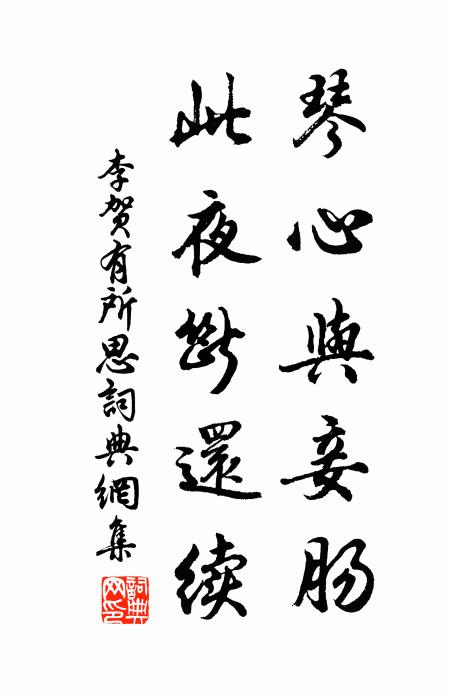 琴心與妾肠
此夜断還续
李贺有所思詞典網集
詞典网印